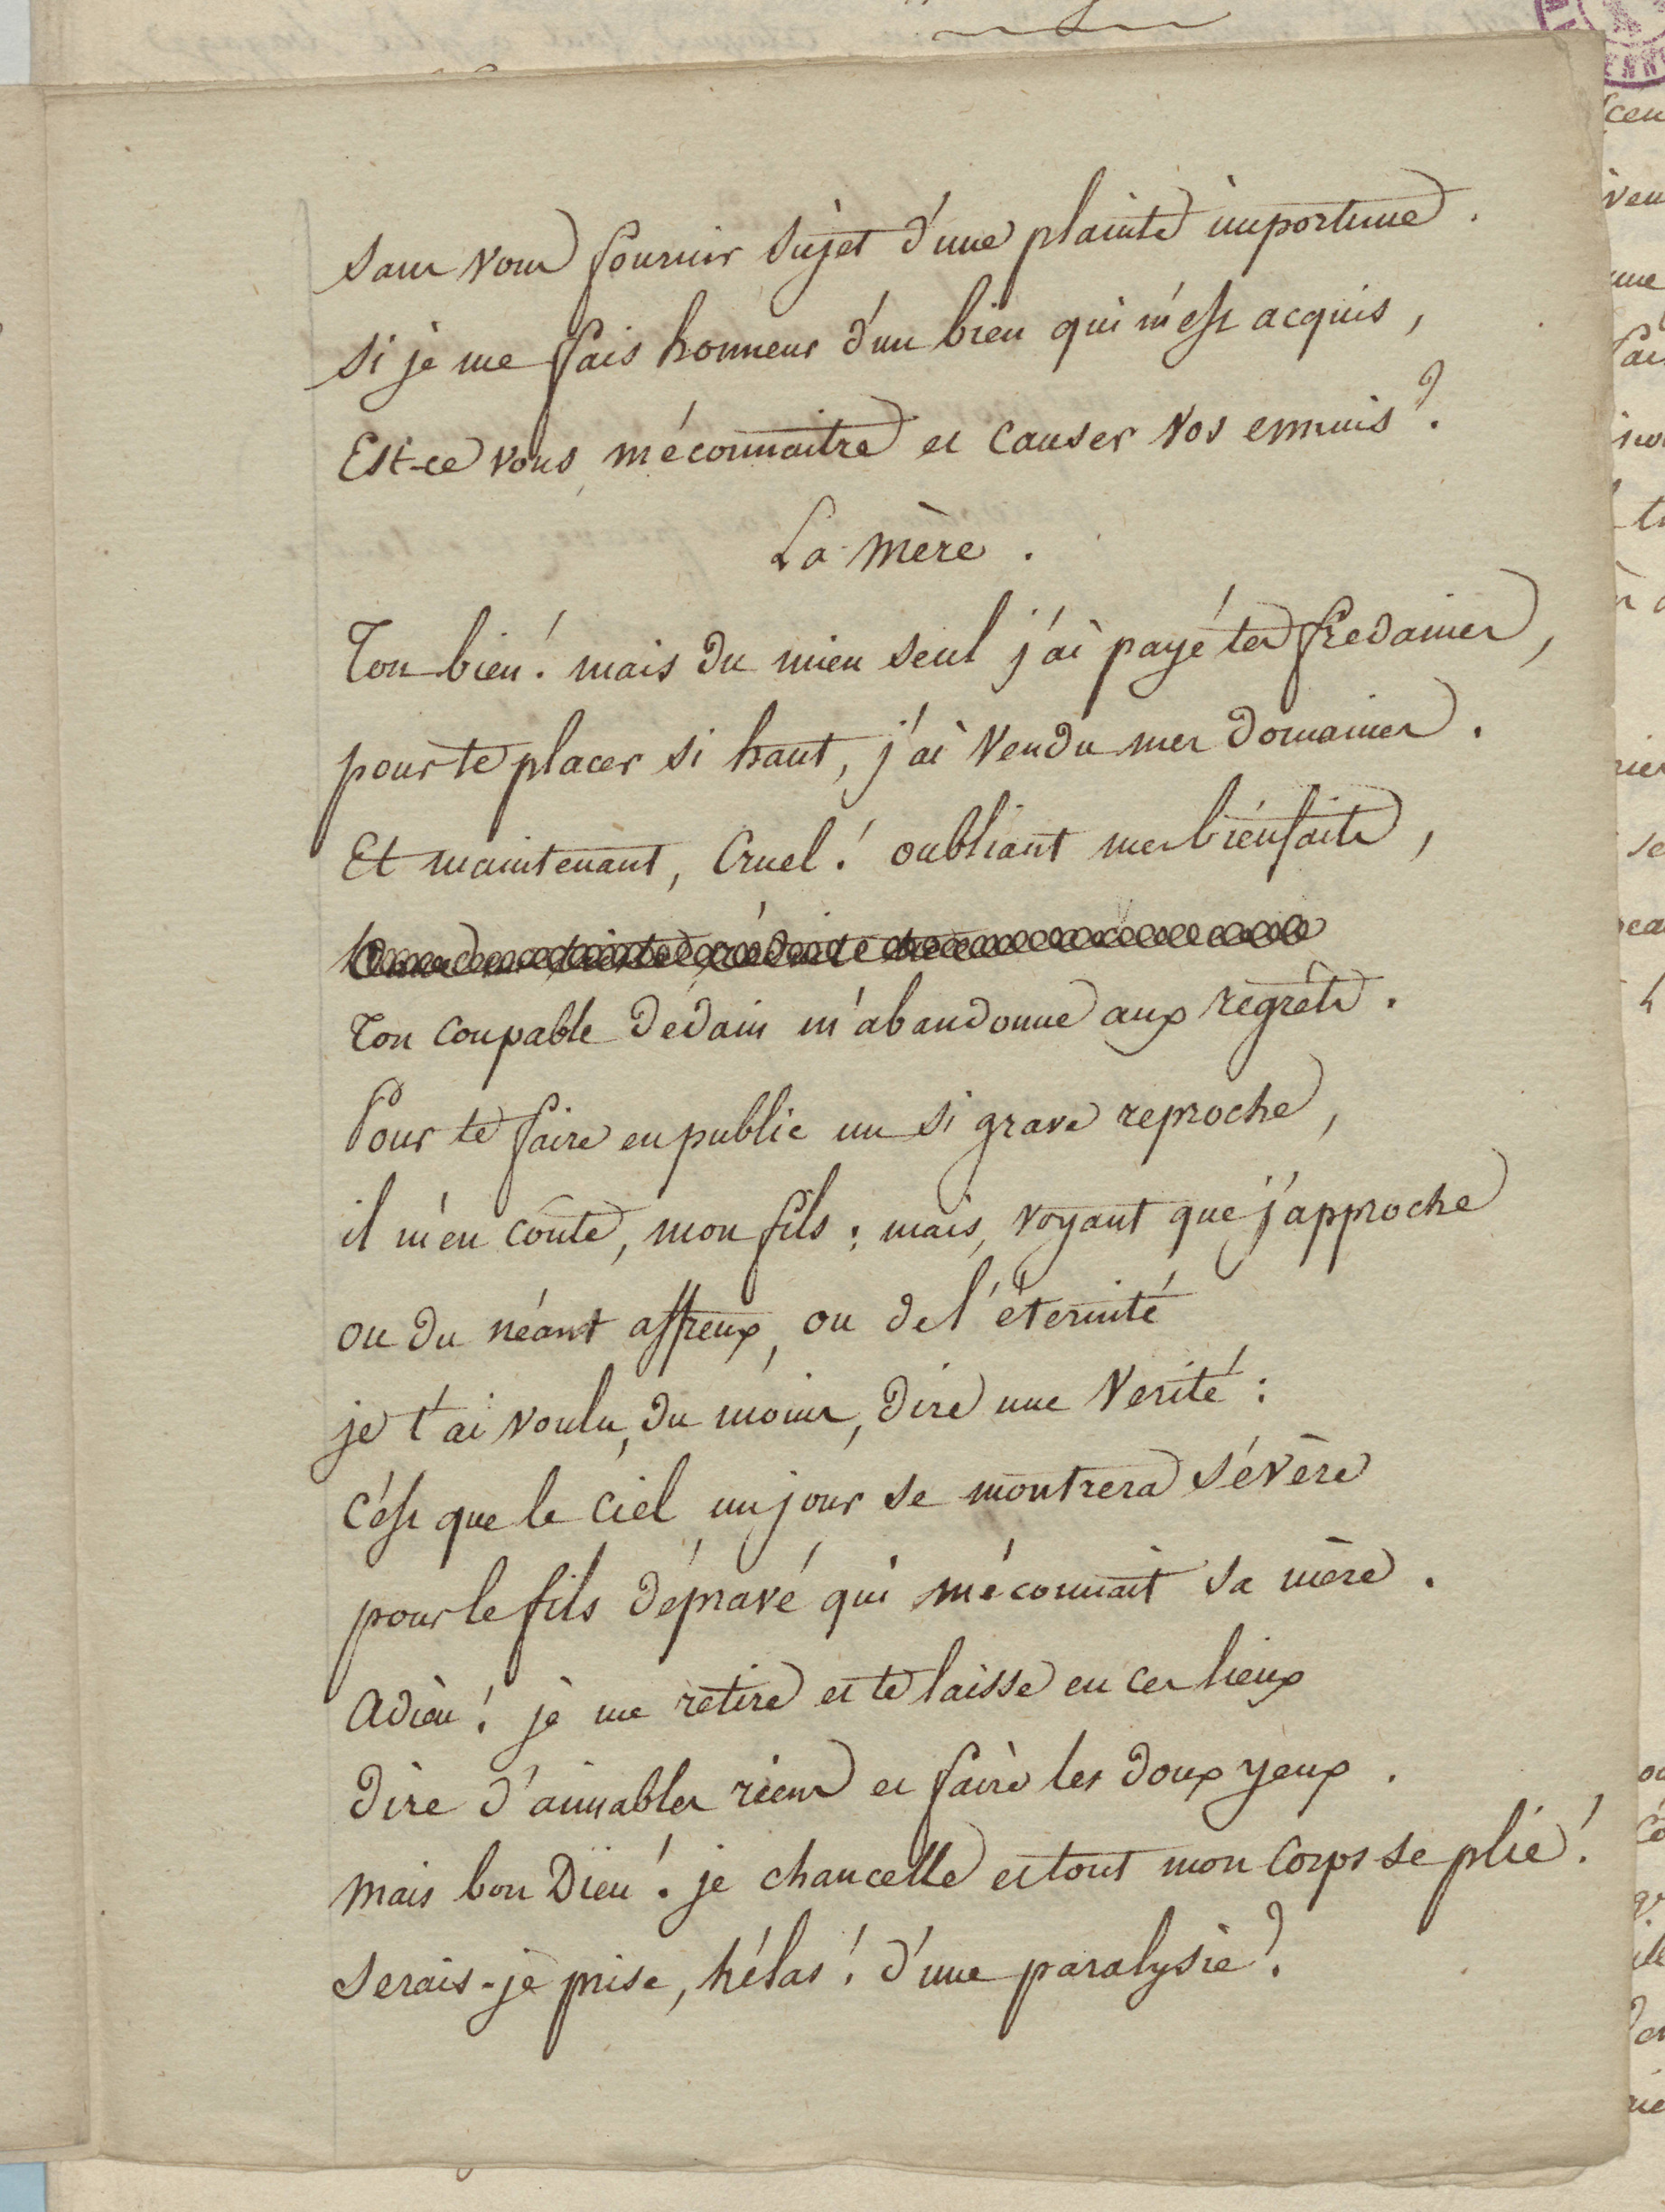 sans vous fournir sujet d'une plainte importune.
si je me fais honneur d'un bien qui m'est acquis,
Est-ce vous méconnaitre et causer vos ennuis?
La mère.
Ton bien! mais du mien seul j'ai payé tes fredaines,
pour te placer si haut, j'ai vendu mes domaines.
Et maintenant, Cruel! oubliant mes bienfaits,
Ton coupable dédain m'abandonne aux regrèts.
Pour te faire en public un si grave reproche,
il m'en coute, mon fils; mais, voyant que j'approche
ou du néant affreux, ou de l'éternité
je t'ai voulu, du moins, dire une Verité:
C'est que le Ciel un jour se montrera sévère
pour le fils dépravé qui méconnait sa mère.
Adieu! je me retire et te laisse en ces lieux
Dire d'aimables riens et faire les doux yeux.
Mais bon Dieu! je chancelle et tout mon Corps se plie!
serais-je prise, hélas! d'une paralysie?